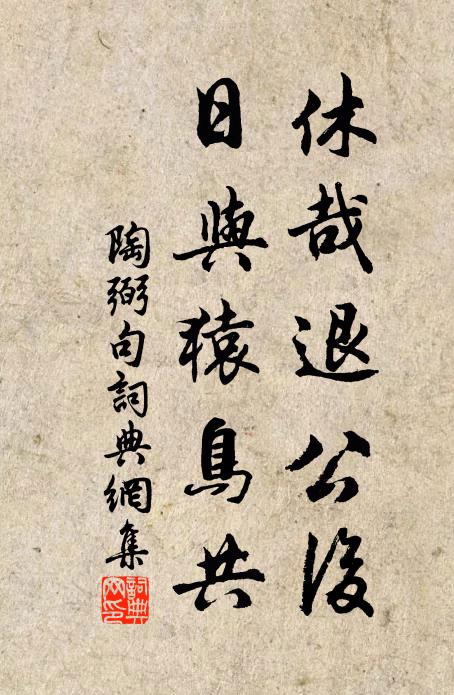 休哉退公後
日與猿鳥共
陶弼句詞典網集
詞典網印